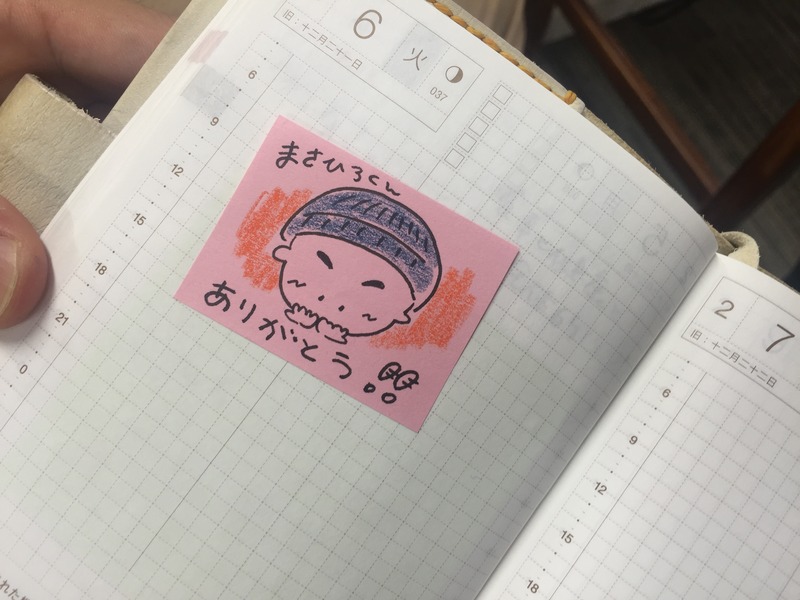 6 火
037
旧：十二月二十一日
6
9
12
15
18
21
0
まさひろくん
ありがとう!!
2 7
旧：十二月二十二日
6
9
12
15
18